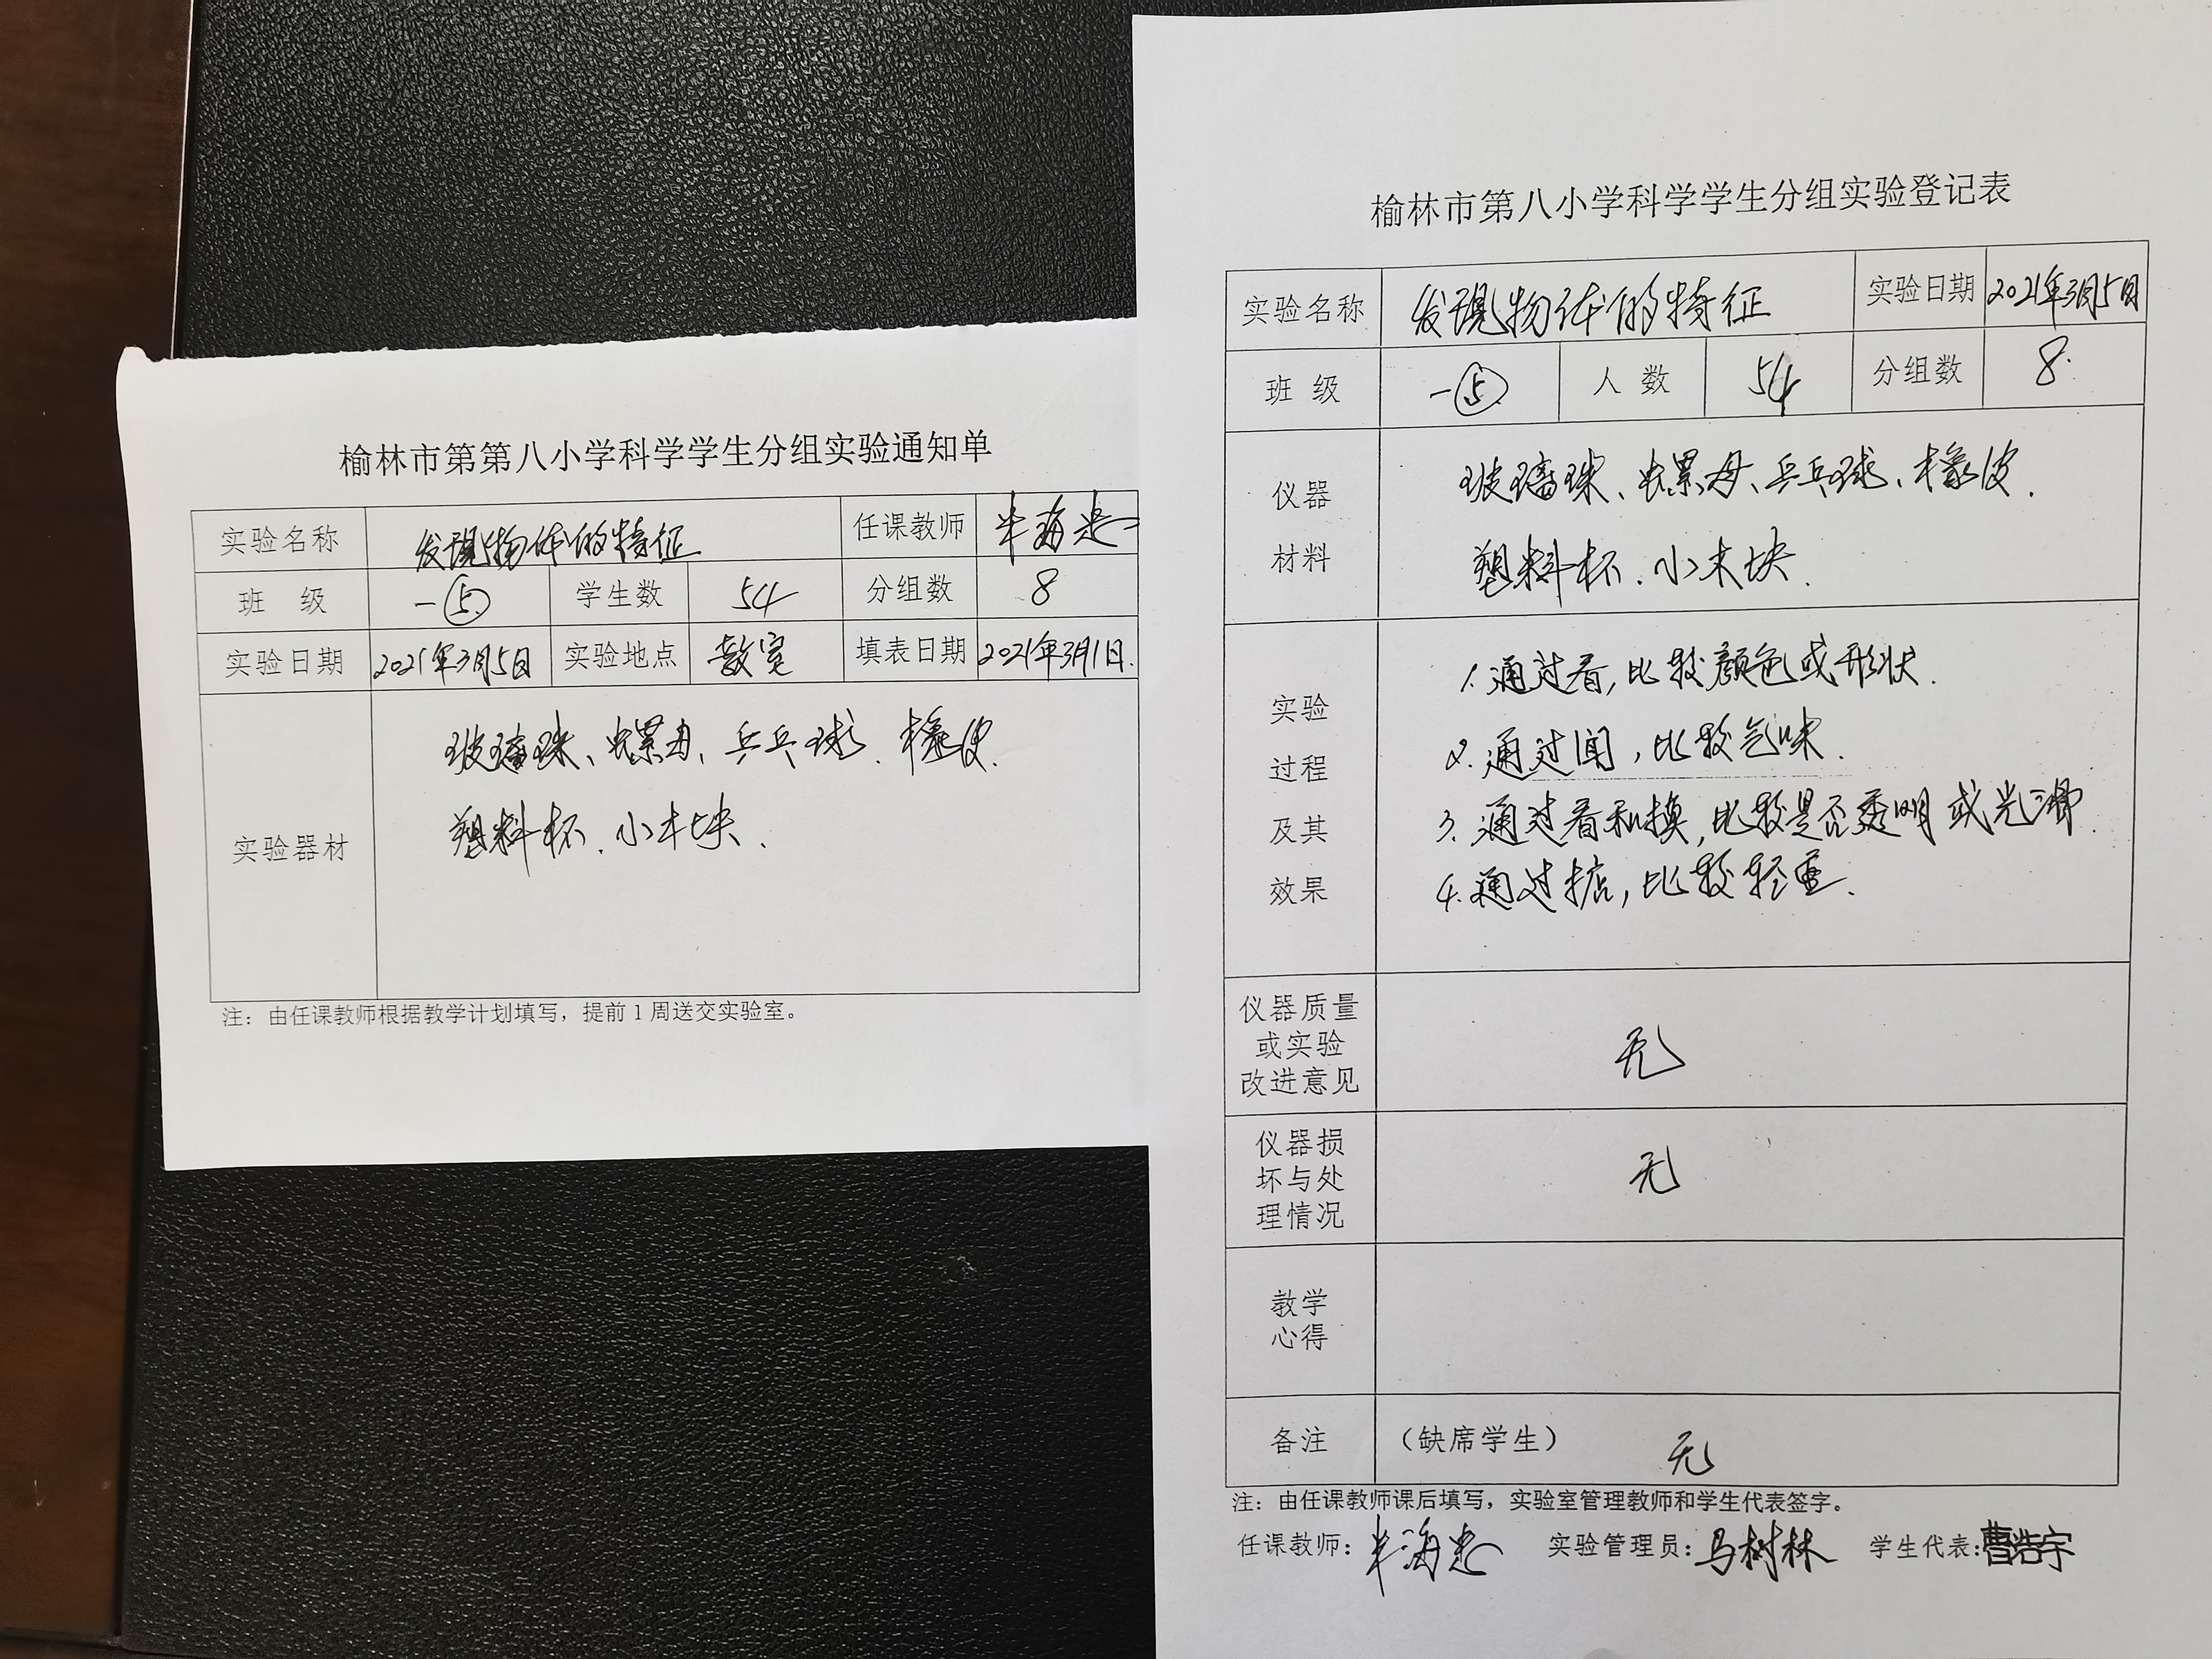 榆林市第第八小学科学学生分组实验通知单
实验名称 发现物体的特征 任课教师 海忠
班 级 一⑤ 学生数 54 分组数 8
实验日期 2021年3月5日 实验地点 教室 填表日期 2021年3月1日.
实验器材
玻璃球、螺母、乒乓球、橡皮.
塑料杯、小木块.
注：由任课教师根据教学计划填写，提前1周送交实验室。
榆林市第八小学科学学生分组实验登记表
实验名称 发现物体的特征 实验日期 2021年3月5日
班 级 一⑤ 人 数 54 分组数 8.
仪器
材料
玻璃球、螺母、乒乓球、橡皮.
塑料杯、小木块.
实验
过程
及其
效果
1.通过看,比较颜色或形状.
2.通过闻,比较气味.
3.通过看和摸,比较是否透明或光滑.
4.通过掂,比较轻重.
仪器质量
或实验
改进意见
无
仪器损
坏与处
理情况
无
教学
心得
备注 （缺席学生） 无
注：由任课教师课后填写，实验室管理教师和学生代表签字。
任课教师: 海忠 实验管理员: 马树林 学生代表: 曹浩宇